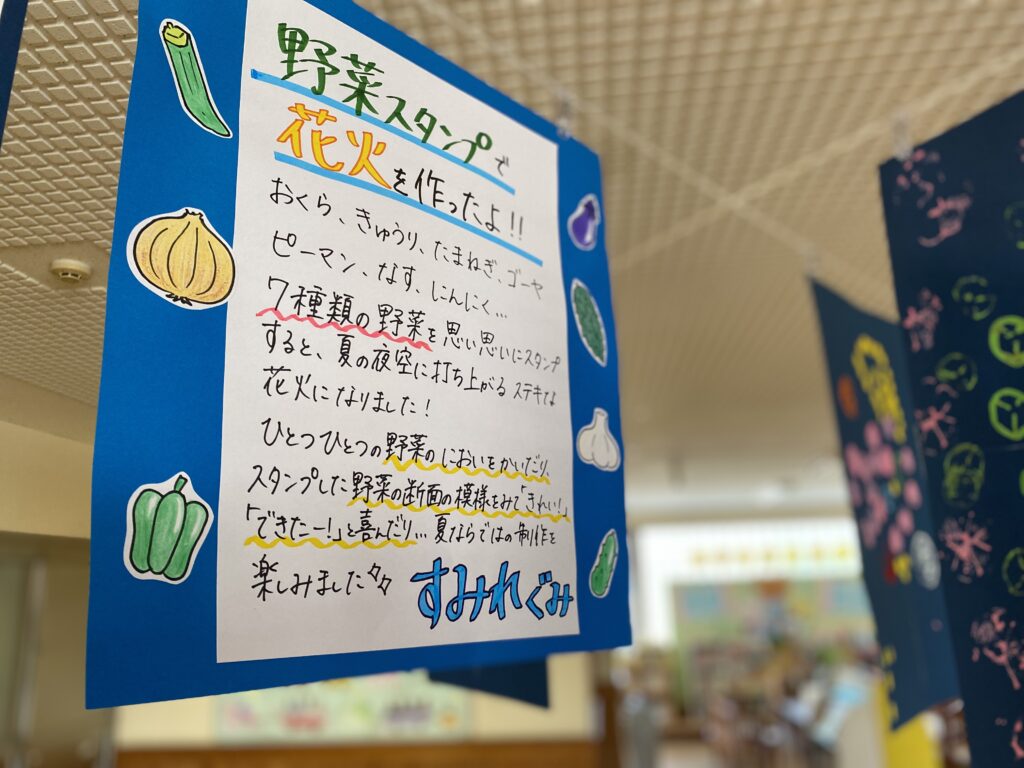 野菜スタンプで
花火を作ったよ!!
おくら、きゅうり、たまねぎ、ゴーヤ
ピーマン、なす、にんにく…
7種類の野菜を思い思いにスタンプ
すると、夏の夜空に打ち上がるステキな
花火になりました!
ひとつひとつの野菜のにおいをかいだり、
スタンプした野菜の断面の模様をみて「きれい!」
「できたー!」と喜んだり…夏ならではの制作を
楽しみました
すみれぐみ